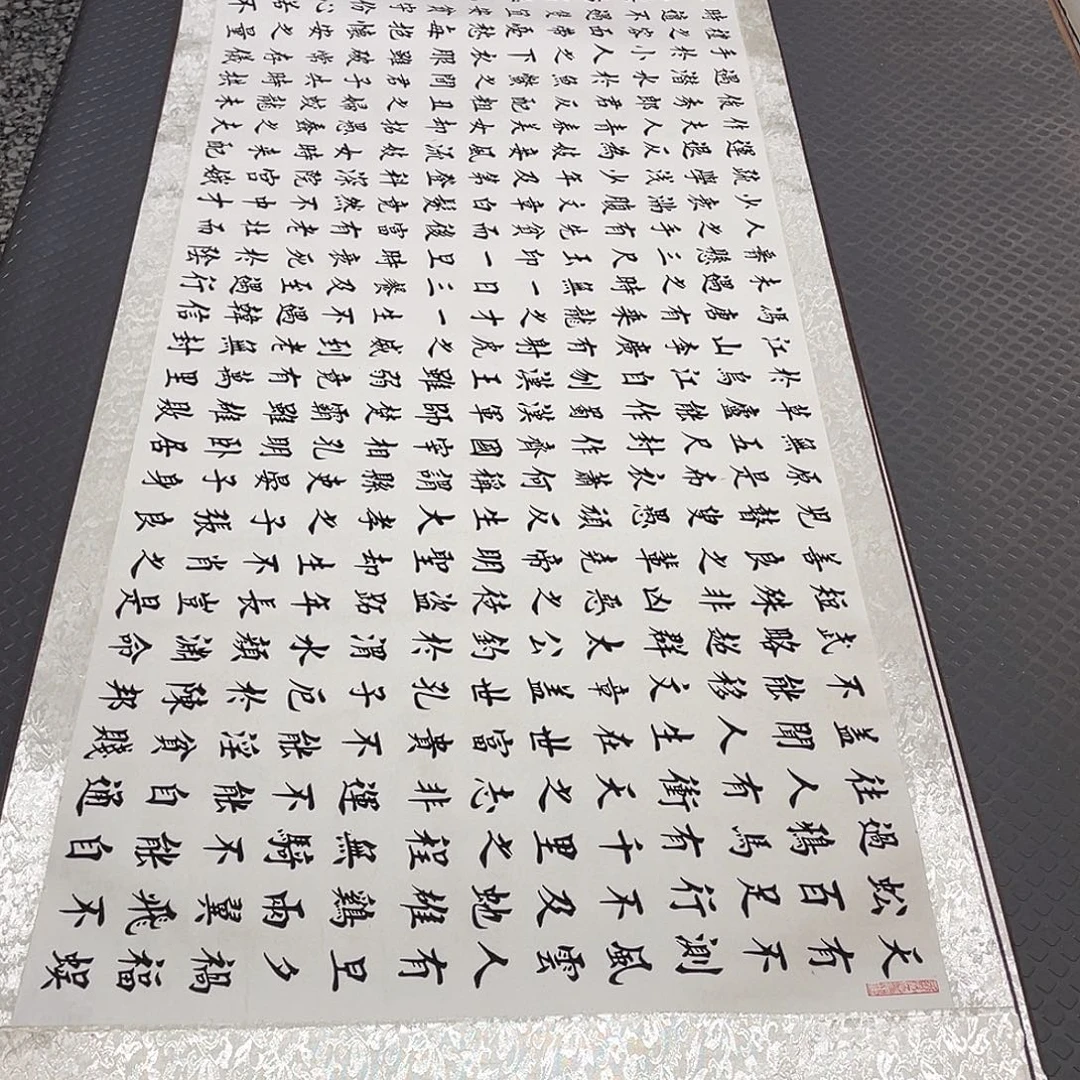 天有不測風雲人有旦夕禍福蜈
蚣百足行不及蛇雄鷄兩翼飛不
過鴉馬有千里之程無騎不能自
往人有衝天之志非運不能自通
盖聞人生在世富貴不能淫貧賤
不能移文章盖世孔子厄於陳邦
武略超群太公釣於渭水顏淵命
短殊非凶惡之徒盜跖年長豈是
善良之輩堯帝明聖却生不肖之
兒瞽叟愚頑反生大孝之子張良
原是布衣蕭何稱謂縣吏晏子身
無五尺封作齊國宰相孔明卧居
草廬能作蜀漢軍師楚霸雖雄敗
於烏江自刎漢王雖弱竟有萬里
江山李廣有射虎之威到老無封
馮唐有乘龍之才一生不遇韓信
未遇之時無一日三餐及至遇行
懸三尺玉印一旦時衰死於陰
人之手有先貧而後富有老壯而
少衰滿腹文章白髮竟然不中才
疏學淺少年及第登科深院宮娥
運退反為妓妾風流妓女時來配
作夫人青春美女却招愚蠢之夫
俊秀郎君反配粗丑之婦蛟龍未
過潛水於魚鱉之間君子失時拱
手於小人之下衣服雖破常存儀
之容面帶憂愁每抱懷安之量
時遭不遇只宜安貧守份心若不